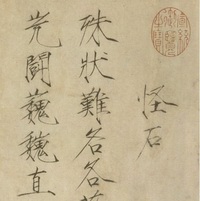 怪石
殊狀難名各
鬪巍巍直